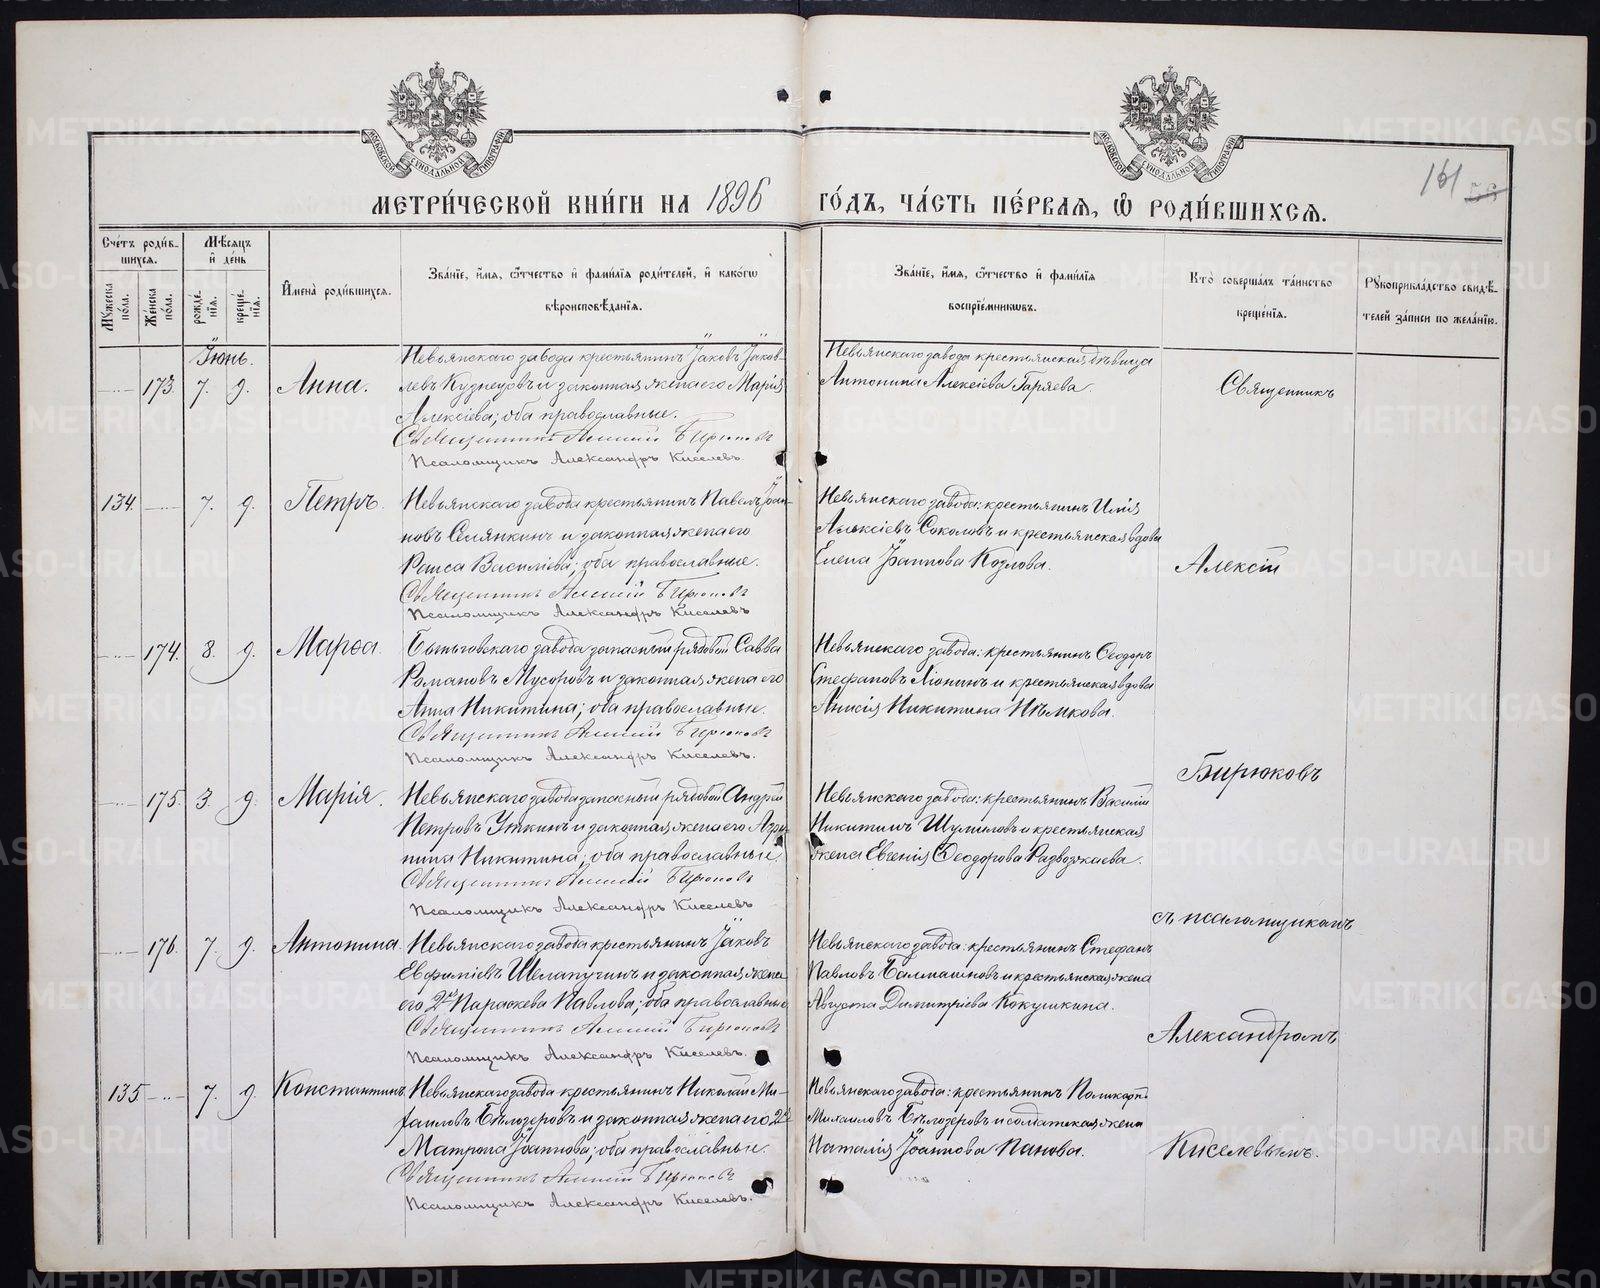 МЕТРИ́ЧЕСКОЙ КНИ́ГИ НА 1896 ГО́ДЪ, ЧА́СТЬ ПЕ́РВАЯ, Ѡ РОДИ́ВШИХСЯ.
161
Сче́тъ роди́в-
шихся.
Мꙋжеска по́ла.
Же́нска по́ла.
Мѣ́сяцъ
и҆ де́нь
рожде́-
нїя.
креще́-
нїя.
И҆мена̀ роди́вшихся.
Зва́нїе, и҆́мя, ѻ҆́тчество и҆ фами́лїя роди́телей, и҆ како́гѡ
вѣроисповѣ́данїя.
Зва́нїе, и҆́мя, ѻ҆́тчество и҆ фами́лїя
воспрїе́мникѡвъ.
Кто̀ соверша́лъ та́инство
креще́нїя.
Рꙋкоприкла́дство свидѣ́-
телей за́писи по жела́нїю.
Іюнь.
173. 7. 9. Анна.
Невьянскаго завода крестьянинъ Іаковъ Іаков-
левъ Кузнецовъ и законная жена его Марія
Алексіева; оба православные.
Священникъ Алексій Бирюковъ
Псаломщикъ Александръ Киселевъ.
Невьянскаго завода крестьянская дѣвица
Антонина Алексіева Гаряева.
Священникъ
134. 7. 9. Петръ.
Невьянскаго завода крестьянинъ Павелъ Іоан-
новъ Селянкинъ и законная жена его
Раиса Василіева; оба православные.
Священникъ Алексій Бирюковъ
Псаломщикъ Александръ Киселевъ
Невьянскаго завода: крестьянинъ Илія
Алексіевъ Соколовъ и крестьянская вдова
Елена Іоаннова Козлова.
Алексій
174. 8. 9. Марѳа.
Быньговскаго завода запасный рядовой Савва
Романовъ Мусоровъ и законная жена его
Анна Никитина; оба православные.
Священникъ Алексій Бирюковъ
Псаломщикъ Александръ Киселевъ.
Невьянскаго завода: крестьянинъ Ѳеодоръ
Стефановъ Ліонинъ и крестьянская вдова
Анисія Никитина
Бирюковъ
175. 3. 9. Марія.
Невьянскаго завода запасный рядовой Андрей
Петровъ Уткинъ и законная жена его Агри-
пина Никитина; оба православные.
Священникъ Алексій Бирюковъ
Псаломщикъ Александръ Киселевъ
Невьянскаго завода: крестьянинъ Василій
Никитинъ Шумиловъ и крестьянская
жена Евгенія Ѳеодорова Развозжаева.
съ псаломщикомъ
176. 7. 9. Антонина.
Невьянскаго завода крестьянинъ Іаковъ
Евфиміевъ Шелапучинъ и законная жена
его Параскева Павлова; оба православные
Священникъ Алексій Бирюковъ
Псаломщикъ Александръ Киселевъ.
Невьянскаго завода: крестьянинъ Стефанъ
Павловъ Балмашновъ и крестьянская жена
Августа Димитріева Кокушкина.
Александромъ
135 7. 9. Константинъ.
Невьянскаго завода крестьянинъ Николай Ми-
хаиловъ Бѣлозеровъ и законная жена его
Матрона Іоаннова; оба православные.
Священникъ Алексій Бирюковъ
Псаломщикъ Александръ Киселевъ.
Невьянскаго завода: крестьянинъ Поликарпъ
Михаиловъ Бѣлозеровъ и солдатская жена
Наталія Іоаннова Панова.
Киселевымъ.
METRIKI.GASO-URAL.RU